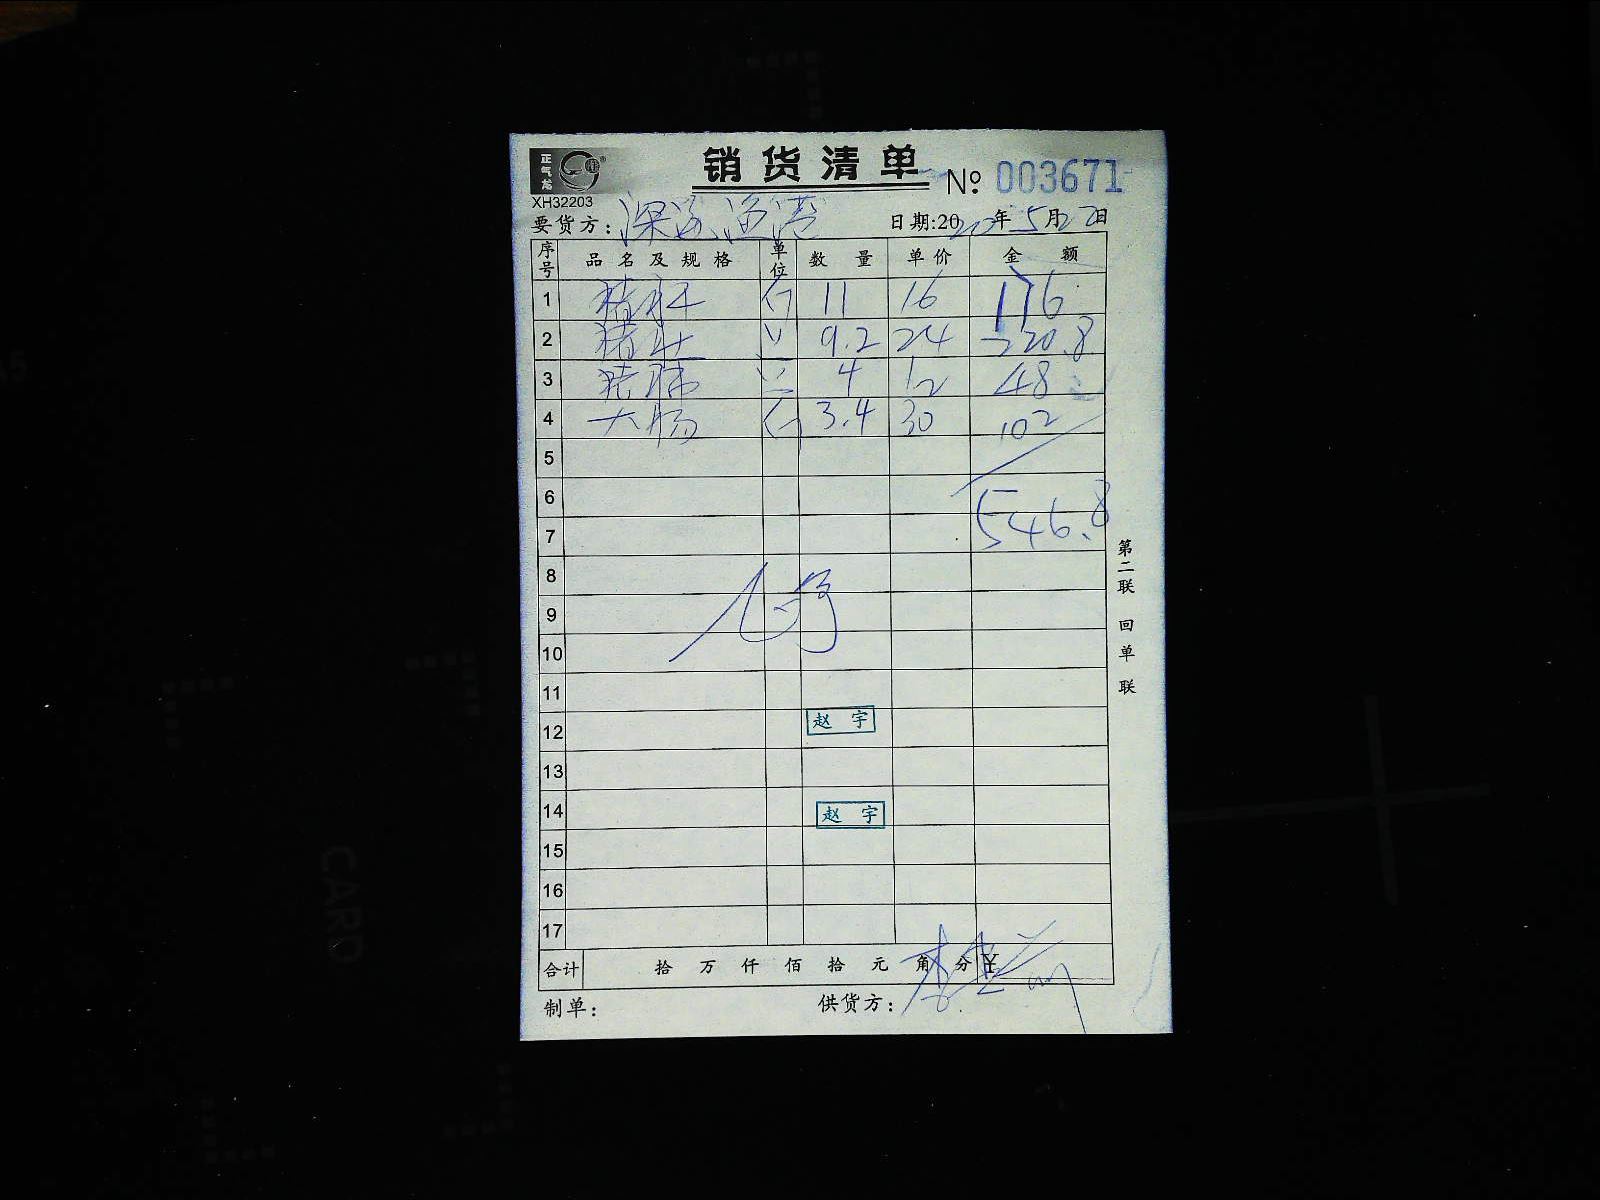 正气龙
销货清单 № 003671
XH32203
要货方: 深 渔湾 日期:20 年 5月22日
序号 品名及规格 单位 数量 单价 金额
1 猪肝 斤 11 16 176
2 猪肚 9.2 24 220.8
3 猪 4 12 48
4 大肠 斤 3.4 30 102
5
6
7 546.8
8
9
10
11
12 赵宇
13
14 赵宇
15
16
17
合计 拾 万 仟 佰 拾 元 角 分 ¥
制单: 供货方: 李
第二联 回单联
CARD
A5